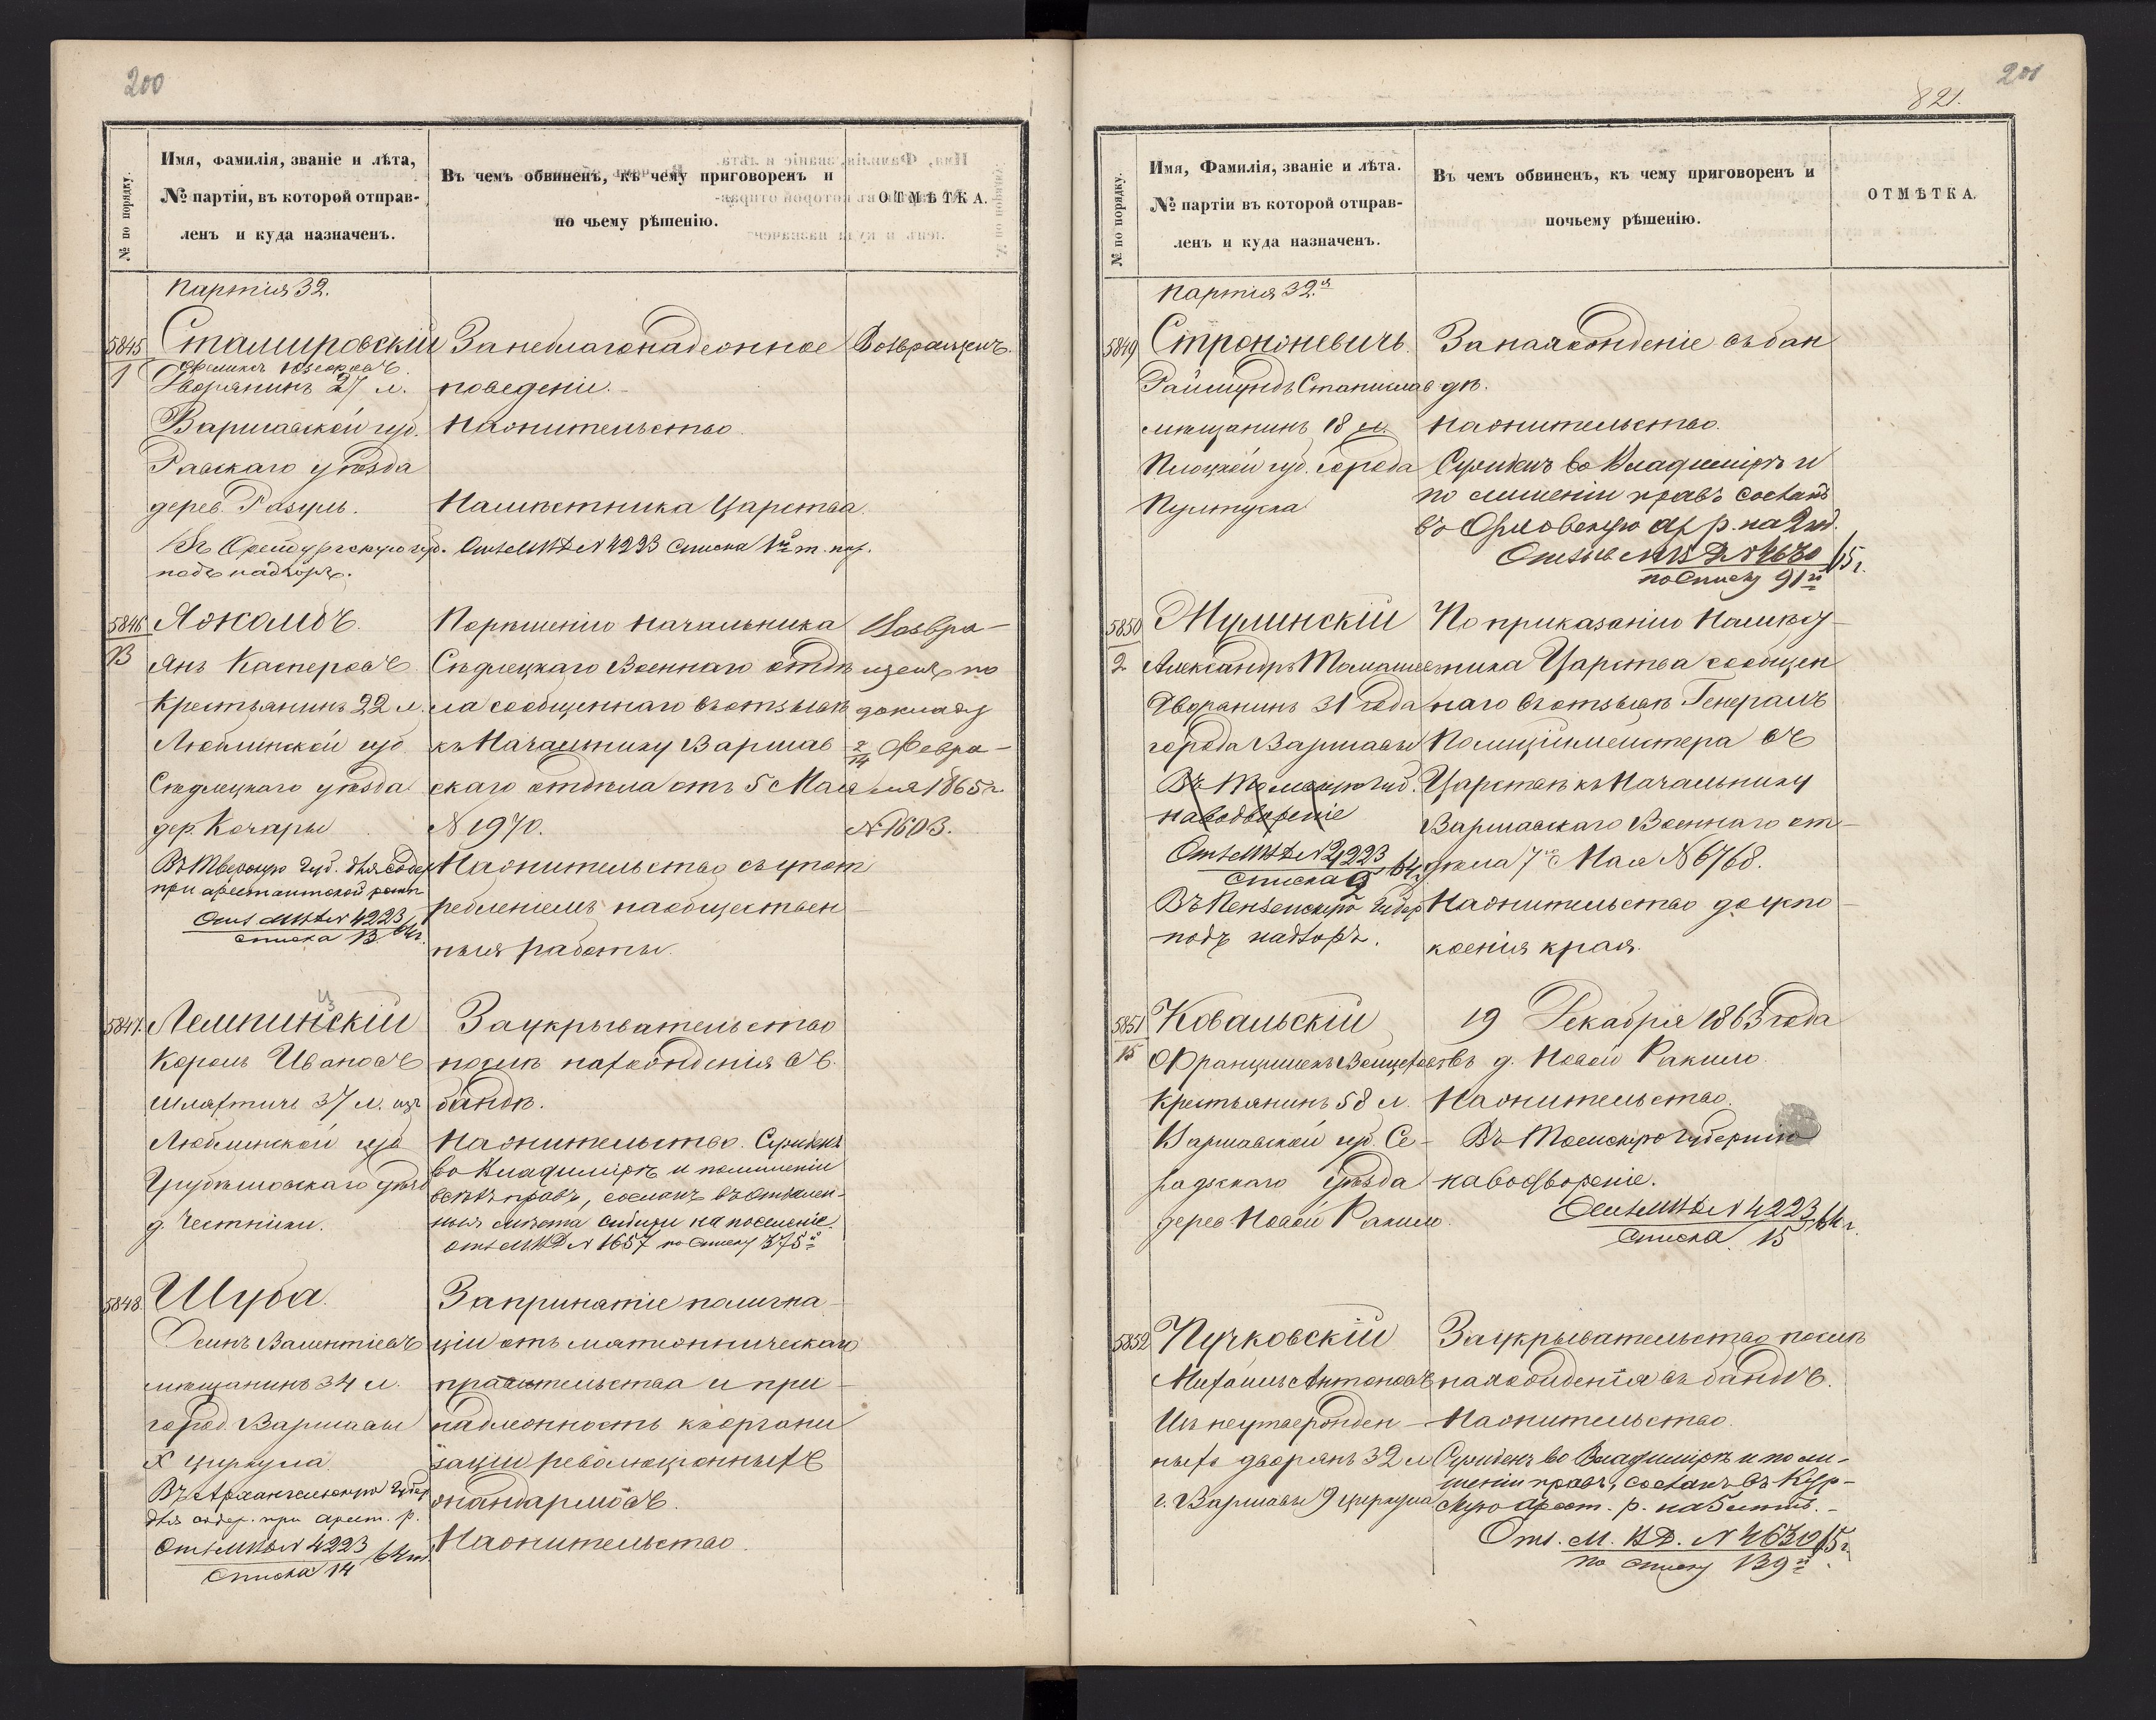 200
№ по порядку.
Имя, Фамилія, званіе и лѣта,
№ партіи, въ которой отправ-
ленъ и куда назначенъ.
Въ чемъ обвиненъ, къ чему приговоренъ и
по чьему рѣшенію.
ОТМѢТКА.
Партія 32.
5845
1
Сташировскій
Дворянинъ 27 л.
Варшавской губ.
Равскаго уѣзда
дерев.
подъ надзоръ.
За неблагонадежное
поведеніе.
На жительство
Намѣстника Царства.
Отз. МВД № 4223 Списка
Возвращенъ.
5846
13
Янъ Касперовъ
Крестьянинъ 22 л.
Люблинской губ.
Сѣдлецкаго уѣзда
дер. Кочары
Въ Тверскую губ. для содер
при арестантской ротѣ
Отз МВД № 4223
списка 13 64 г.
По рѣшенію Начальника
Сѣдлецкаго Военнаго отдѣ
ла сообщеннаго въ отзывѣ
къ Начальнику Варшав
скаго отдѣла отъ 5 Мая
№ 1970.
На жительство съ упот
ребленіемъ на обществен
ныя работы.
Возвра-
щенъ по
докладу
2/14 Февра-
ля 1865 г.
№ 1603.
5847.
Лемпинскій
Кароль Ивановъ
шляхтичъ 37 л. изъ
Люблинской губ
Грубешовскаго уѣзда
д. Честники.
За укрывательство
послѣ нахожденія въ
бандѣ.
На жительство. Сужденъ
во Владимірѣ и по лишеніи
всѣхъ правъ, сосланъ въ отдален-
ныя мѣста Сибири на поселеніе.
отз МВД № 1657 по списку 375й
5848.
Шуба.
Осипъ Валентіевъ
мѣщанинъ 34 л.
город. Варшавы
X циркула.
Въ Архангельскую губер
для содер. при арест. р.
Отз МВД № 4223
Списка 14 64 г.
За принятіе номина-
ціи отъ мятежническаго
правительства и при-
надлежность къ органи
заціи революціонныхъ
жандармовъ.
На жительство.
201
821.
№ по порядку.
Имя, Фамилія, званіе и лѣта.
№ партіи въ которой отправ-
ленъ и куда назначенъ.
Въ чемъ обвиненъ, къ чему приговоренъ и
почьему рѣшенію.
ОТМѢТКА.
Партія 32.я
5849
Раймундъ Станислав
мѣщанинъ 18 л.
Плоцкой губ. города
Пултуска
За нахожденіе въ бан
дѣ.
На жительство.
Сужденъ во Владимірѣ и
по лишеніи правъ сосланъ
въ Орловскую ар. р. на 2 год.
Отзыв МВД № 4630 /65 г.
по списку 91й
5850
2
Мулинскій
Александръ Томашев
Дворянинъ 31 года
города Варшавы
Въ Томскую губ.
на водвореніе
Отз МВД № 4223
списка 64 г.
Въ Пензенскую губер
подъ надзоръ.
По приказанію Намѣст-
ника Царства сообщен
наго въ отзывѣ Генералъ
Полиціймейстера въ
Царствѣ къ Начальнику
Варшавскаго Военнаго от-
дѣла 7го Мая № 6768.
На жительство до успо-
коенія края.
5851
15
Ковальскій
Францишекъ Войцеховъ
Крестьянинъ 58 л.
Варшавской губ. Се-
радзкаго уѣзда
дерев Новой Ракши.
19 Декабря 1863 года
въ д. Новой Ракши.
На жительство.
Въ Томскую губернію
на водвореніе.
Отз МВД № 4223 /64 г.
Списка 15
5852
Пучковскій
Михаилъ Антоновъ
Изъ неутвержден-
ныхъ дворянъ 32 л
г. Варшавы 9 циркула
За укрывательство послѣ
нахожденія въ бандѣ.
На жительство.
Сужденъ во Владимірѣ и по ли-
шеніи правъ, сосланъ въ Кур-
скую арест. р. на 5 лѣтъ.
Отз. М. В. Д. № 4630 /65 г.
по списку 139й